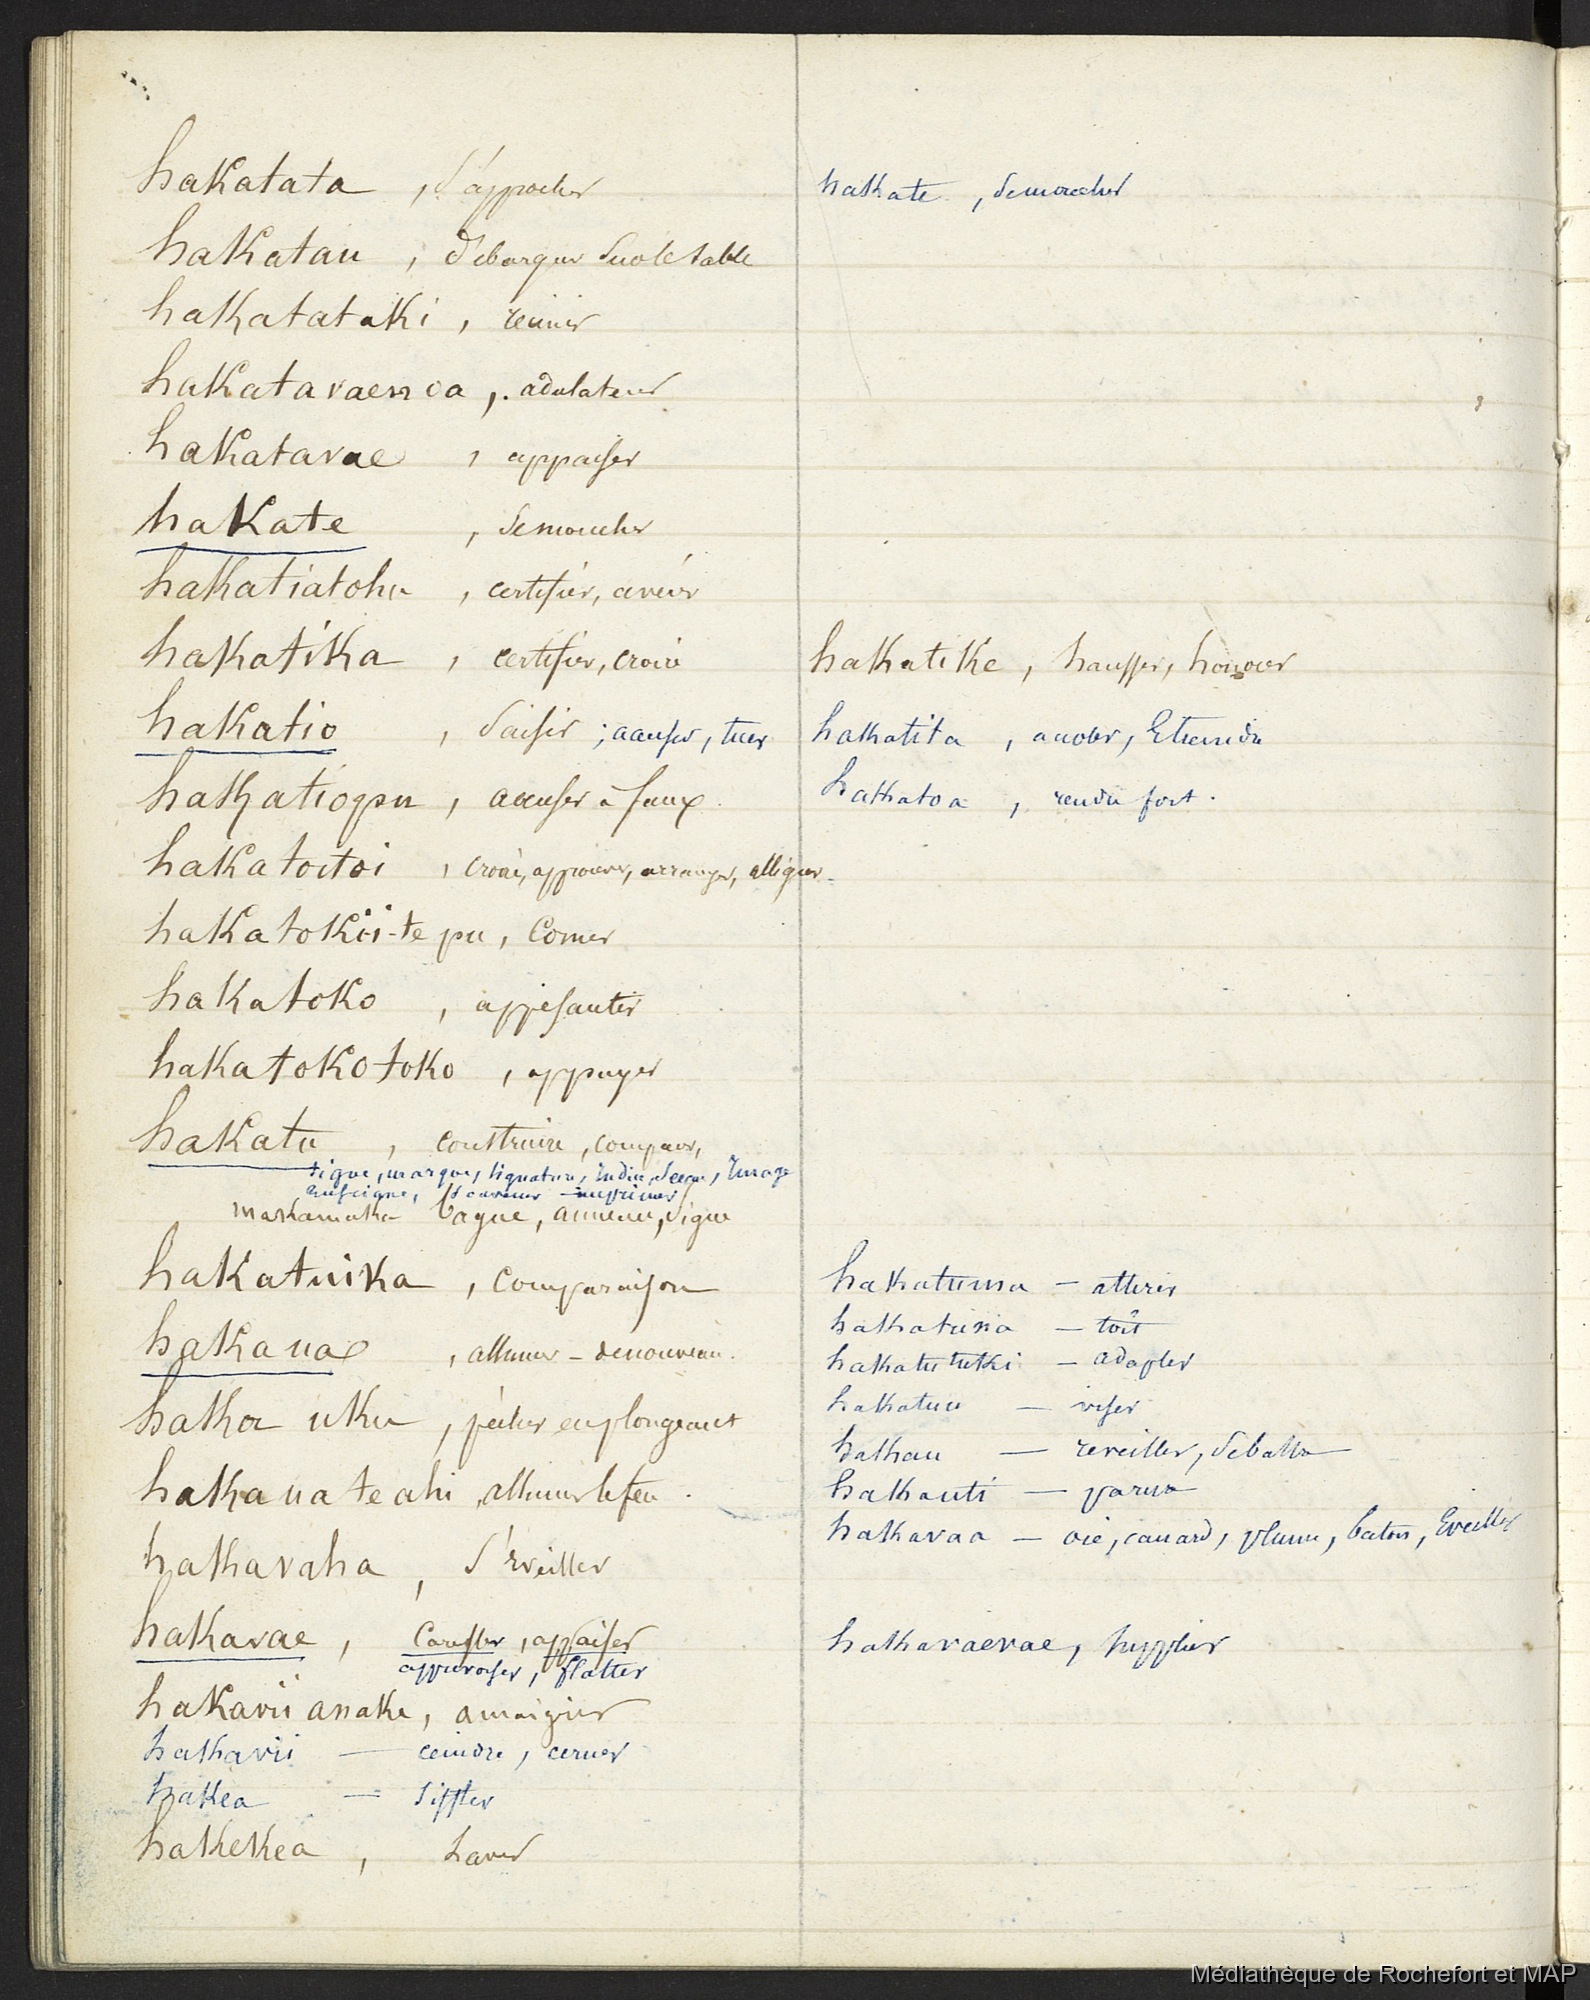 hakatata , s'approcher
hakatau , débarquer sur le sable
hakatataki , réunir
hakatavaenoa , adulateur
hakatavae , appaiser
hakate , se moucher
hakatiatohu , certifier, avérer
hakatika , certifier, croire
hakatio , saisir ; accuser, tuer
hakatiopu , accuser à faux
hakatoitoi , croire, approuver, arranger, alligner
hakatokii-te pu , corner
hakatoko , appesantir
hakatokotoko , appuyer
hakatu , construire, comparer,
signe, marque, signature, indice, sceau, Image
enseigne, souvenir imprimer
makamaka bague, anneau, signe
hakatuika , comparaison
hakaua , allumer – de nouveau
haka uku , pécher en plongeant
hakaua te ahi , allumer le feu .
hakavaha , s'éveiller
hakavae , caresser, appaiser
apprivoiser, flatter
hakavii anake , amaigrir
hakavii — ceindre, cerner
hakea — siffler
hakekea , haver
hakate , se moucher
hakatike , hausser, honorer
hakatita , accoler, Etreindre
hakatoa , rendre fort .
hakatuma – atterir
hakatuna – toit
hakatutuki – adapter
hakatuu — viser
hakau — reveiller, debattre
hakauti — parure
hakavaa — oie, canard, plume, baton, Eveiller
hakavaevae , supplier
Médiathèque de Rochefort et MAP